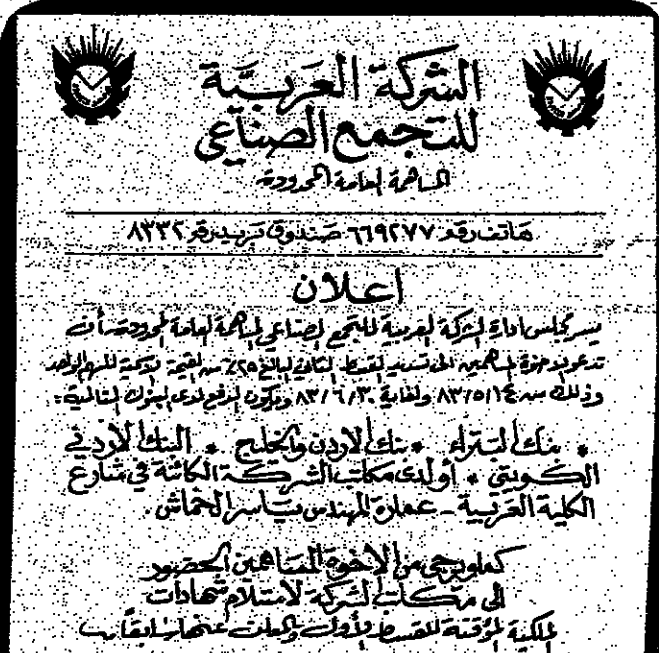 الشركة العربية
للتجمع الصناعي
المساهمة العامة المحدودة
هاتف رقم ٦٦٩٢٧٧ صندوق بريد رقم ٨٣٣٢
اعلان
يسر مجلس ادارة الشركة العربية للتجمع الصناعي المساهمة العامة المحدودة أن
تدعو الاخوة المساهمين الى تسديد القسط الثاني البالغ ٢٥٪ من القيمة الاسمية للسهم الواحد
وذلك من ٨٣/٥/١٤ ولغاية ٨٣/٦/٣٠ ويكون الدفع لدى البنوك التالية :
* بنك البتراء * بنك الاردن والخليج * البنك الاردني
الكويتي * أو لدى مكاتب الشركة الكائنة في شارع
الكلية العربية - عمارة المهندس ياسر الحماش .
كما ويرجى من الاخوة المساهمين الحضور
الى مكاتب الشركة لاستلام شهادات
الملكية المؤقتة للقسط الأول والمعلن عنها سابقاً